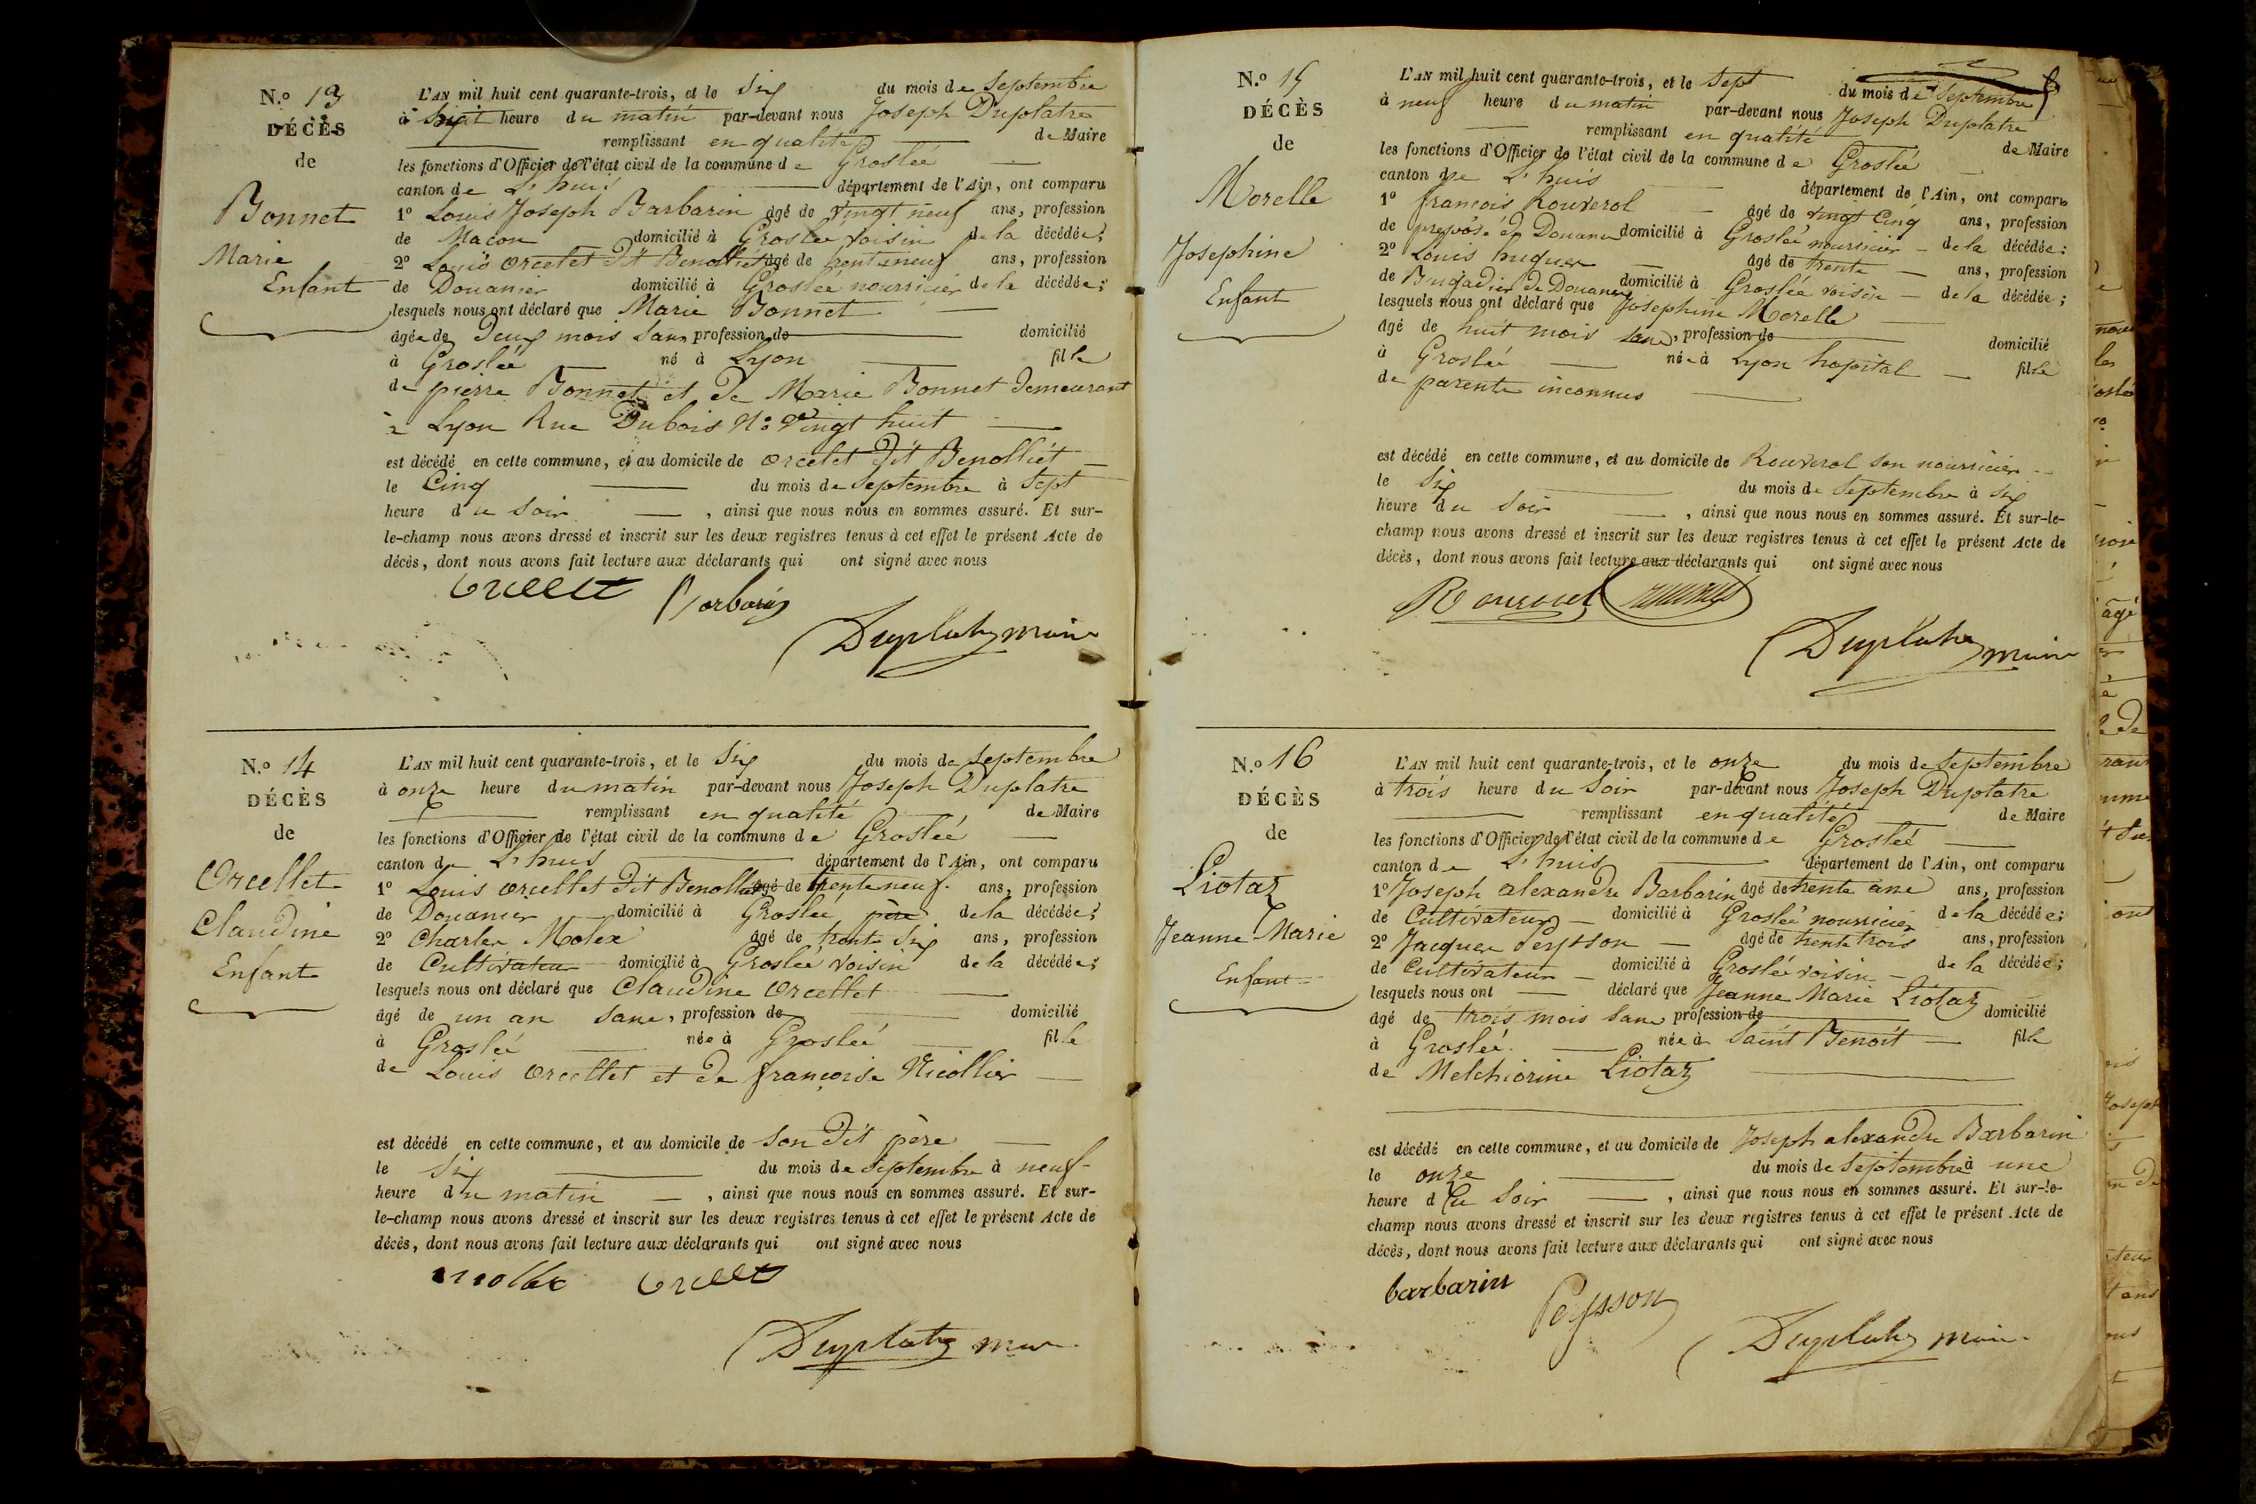 N.o 13
DÉCÈS
de
Bonnet
Marie
Enfant
L'AN mil huit cent quarante-trois, et le Six du mois de Septembre
à heure du matin par-devant nous Joseph Duplatre
remplissant en qualité de Maire
les fonctions d'Officier de l'état civil de la commune de Groslée
canton de L'huis département de l'Ain, ont comparu
1o Louis Joseph Barbarin âgé de vingt neuf ans, profession
de Macon domicilié à Groslée voisin de la décédée;
2o Louis Orcelet dit Benolliet âgé de trente neuf ans, profession
de Douanier domicilié à Groslée nourricier de la décédée;
lesquels nous ont déclaré que Marie Bonnet
âgée de Deux mois Sans profession de domicilié
à Groslée né à Lyon fille
de pierre Bonnet et de Marie Bonnet demeurant
à Lyon Rue Dubois No Vingt huit
est décédé en cette commune, et au domicile de Orcelet dit Benolliet
le Cinq du mois de Septembre à Sept
heure du Soir , ainsi que nous nous en sommes assuré. Et sur-
le-champ nous avons dressé et inscrit sur les deux registres tenus à cet effet le présent Acte de
décès, dont nous avons fait lecture aux déclarants qui ont signé avec nous
Orcellet Barbarin
Duplatre maire
N.o 14
DÉCÈS
de
Orcellet
Claudine
Enfant
L'AN mil huit cent quarante-trois, et le Six du mois de Septembre
à onze heure du matin par-devant nous Joseph Duplatre
remplissant en qualité de Maire
les fonctions d'Officier de l'état civil de la commune de Groslée
canton de L'huis département de l'Ain, ont comparu
1o Louis Orcellet dit Benolliet âgé de trente neuf ans, profession
de Douanier domicilié à Groslée père de la décédée;
2o Charles Molex âgé de trente Six ans, profession
de Cultivateur domicilié à Groslée voisin de la décédée;
lesquels nous ont déclaré que Claudine Orcellet
âgé de un an Sans, profession de domicilié
à Groslée née à Groslée fille
de Louis Orcellet et de françoise Nicollier
est décédé en cette commune, et au domicile de Son dit père
le Six du mois de Septembre à neuf
heure du matin , ainsi que nous nous en sommes assuré. Et sur-
le-champ nous avons dressé et inscrit sur les deux registres tenus à cet effet le présent Acte de
décès, dont nous avons fait lecture aux déclarants qui ont signé avec nous
mollex Orcellet
Duplatre maire
N.o 15
DÉCÈS
de
Morelle
Josephine
Enfant
L'AN mil huit cent quarante-trois, et le Sept du mois de Septembre
à neuf heure du matin par-devant nous Joseph Duplatre
remplissant en qualité de Maire
les fonctions d'Officier de l'état civil de la commune de Groslée
canton de L'huis département de l'Ain, ont comparu
1o francois Rouverol âgé de vingt Cinq ans, profession
de préposé és Douane domicilié à Groslée nourricier de la décédée;
2o Louis huguer âgé de trente ans, profession
de Brigadier de Douane domicilié à Groslée voisin de la décédée;
lesquels nous ont déclaré que Josephine Morelle
âgé de huit mois sans, profession de domicilié
à Groslée née à Lyon hopital fille
de parents inconnus
est décédé en cette commune, et au domicile de Rouverol son nourricier
le Six du mois de Septembre à Six
heure du Soir , ainsi que nous nous en sommes assuré. Et sur-le-
champ nous avons dressé et inscrit sur les deux registres tenus à cet effet le présent Acte de
décès, dont nous avons fait lecture aux déclarants qui ont signé avec nous
Rouverol
Duplatre maire
N.o 16
DÉCÈS
de
Liotaz
Jeanne Marie
Enfant
L'AN mil huit cent quarante-trois, et le onze du mois de Septembre
à trois heure du Soir par-devant nous Joseph Duplatre
remplissant en qualité de Maire
les fonctions d'Officier de l'état civil de la commune de Groslée
canton de L'huis département de l'Ain, ont comparu
1o Joseph alexandre Barbarin âgé de trente ans, profession
de Cultivateur domicilié à Groslée nourricier de la décédée;
2o Jacques Peysson âgé de trente trois ans, profession
de Cultivateur domicilié à Groslée voisin de la décédée;
lesquels nous ont déclaré que Jeanne Marie Liotaz
âgé de trois mois Sans profession de domicilié
à Groslée née à Saint Benoit fille
de Melchiorine Liotaz
est décédé en cette commune, et au domicile de Joseph alexandre Barbarin
le onze du mois de Septembre à une
heure du Soir , ainsi que nous nous en sommes assuré. Et sur-le-
champ nous avons dressé et inscrit sur les deux registres tenus à cet effet le présent Acte de
décès, dont nous avons fait lecture aux déclarants qui ont signé avec nous
barbarin Peysson
Duplatre maire